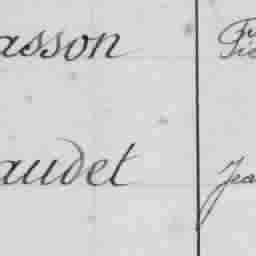 asson
audet
Jea